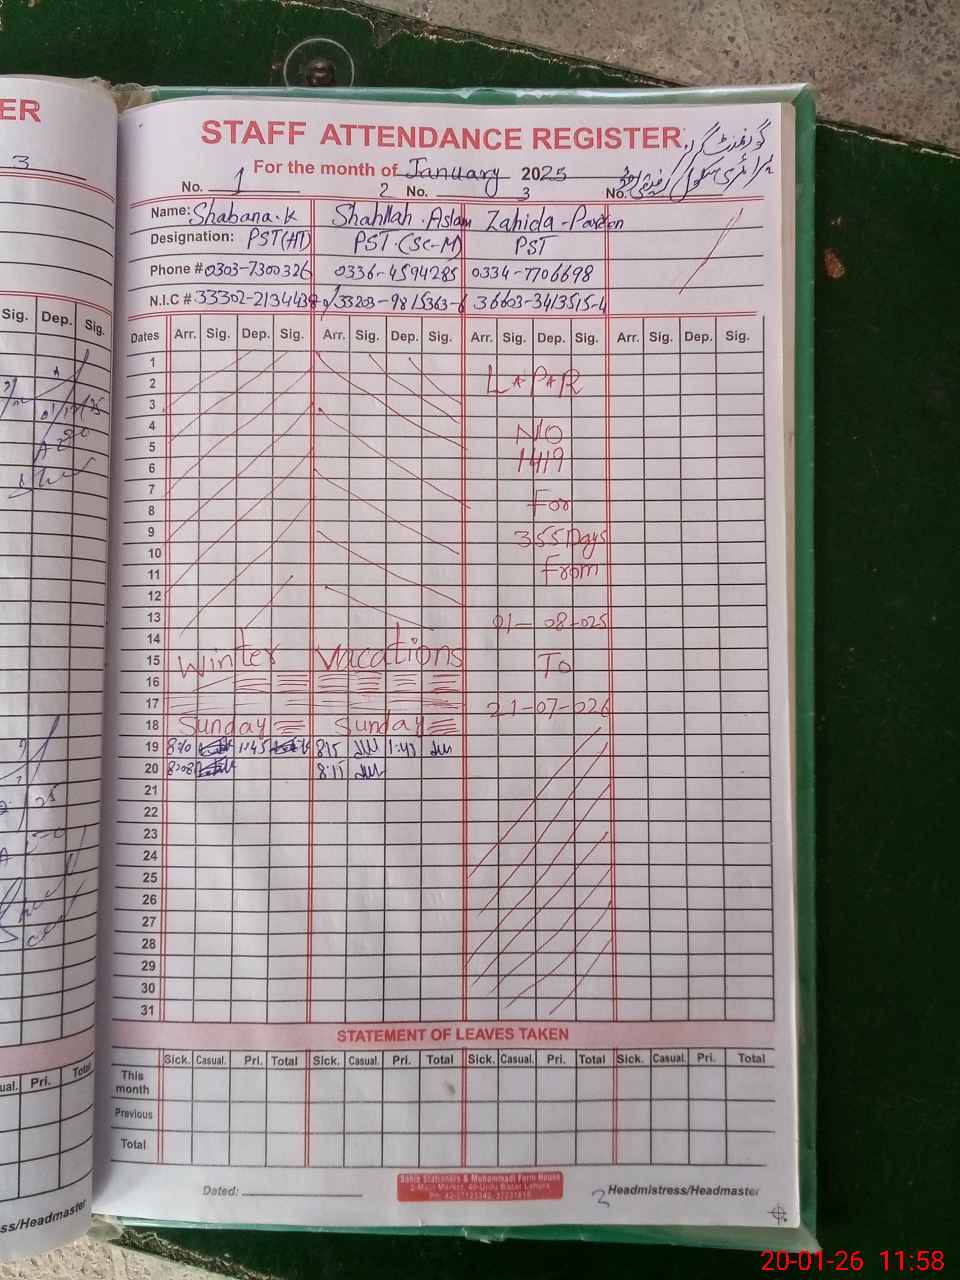 ER
3
Sig. Dep. Sig.
STAFF ATTENDANCE REGISTER
For the month of January 2025
گورنمنٹ گرلز
پرائمری سکول
No. 1 2 No. 3 No.
Name: Shabana.K Shahllah.Aslam Zahida-Parveen
Designation: PST(HT) PST.(SC-M) PST
Phone # 0303-7300326 0336-4594285 0334-7706698
N.I.C # 33302-2134438 33203-9815363-6 36603-3413515-4
Dates Arr. Sig. Dep. Sig. Arr. Sig. Dep. Sig. Arr. Sig. Dep. Sig. Arr. Sig. Dep. Sig.
1
2 L.P.R
3
4 NO
5 1419
6
7 For
8
9 355 Days
10 From
11
12
13 01-08-025
14
15 Winter Vacations To
16
17 21-07-026
18 Sunday Sunday
19 1:45 815
20 8:11
21
22
23
24
25
26
27
28
29
30
31
STATEMENT OF LEAVES TAKEN
Sick. Casual. Pri. Total Sick. Casual. Pri. Total Sick. Casual. Pri. Total Sick. Casual. Pri. Total
This month
Previous
Total
ual. Pri. Total
ss/Headmaster
Dated:
Sabir Stationers & Muhammadi Form House
2-Main Market, 40-Urdu Bazar Lahore
Headmistress/Headmaster
20-01-26 11:58